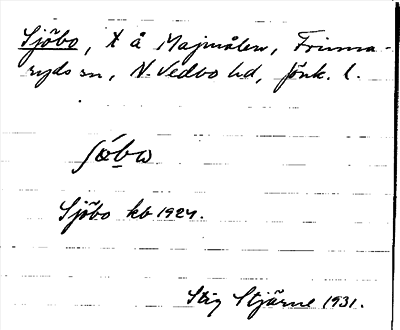 Sjöbo, t å Majmålen, Frinna-
ryds sn, N. Vedbo hd, Jönk. l.
Sjöbo kb 1924.
Stig Stjärne 1931.